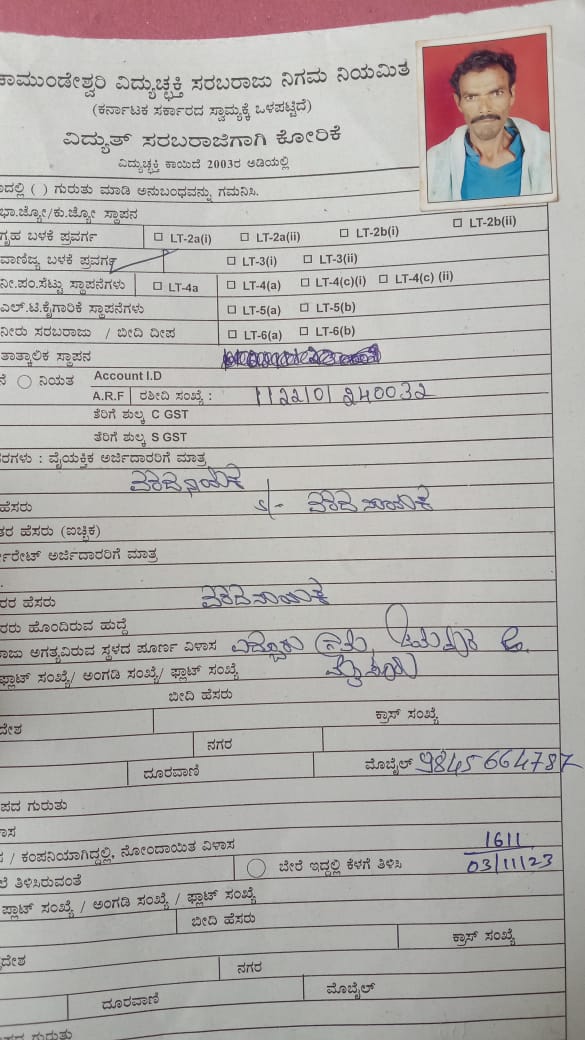 ಾಮುಂಡೇಶ್ವರಿ ವಿದ್ಯುಚ್ಛಕ್ತಿ ಸರಬರಾಜು ನಿಗಮ ನಿಯಮಿತ
(ಕರ್ನಾಟಕ ಸರ್ಕಾರದ ಸ್ವಾಮ್ಯಕ್ಕೆ ಒಳಪಟ್ಟಿದೆ)
ವಿದ್ಯುತ್ ಸರಬರಾಜಿಗಾಗಿ ಕೋರಿಕೆ
ವಿದ್ಯುಚ್ಛಕ್ತಿ ಕಾಯಿದೆ 2003ರ ಅಡಿಯಲ್ಲಿ
ದಲ್ಲಿ ( ) ಗುರುತು ಮಾಡಿ ಅನುಬಂಧವನ್ನು ಗಮನಿಸಿ.
ಭಾ.ಜ್ಯೋ/ಕು.ಜ್ಯೋ ಸ್ಥಾಪನ
ಗೃಹ ಬಳಕೆ ಪ್ರವರ್ಗ LT-2a(i) LT-2a(ii) LT-2b(i) LT-2b(ii)
ವಾಣಿಜ್ಯ ಬಳಕೆ ಪ್ರವರ್ಗ LT-3(i) LT-3(ii)
ನೀ.ಪಂ.ಸೆಟ್ಟು ಸ್ಥಾಪನೆಗಳು LT-4a LT-4(a) LT-4(c)(i) LT-4(c) (ii)
ಎಲ್.ಟಿ.ಕೈಗಾರಿಕೆ ಸ್ಥಾಪನೆಗಳು LT-5(a) LT-5(b)
ನೀರು ಸರಬರಾಜು / ಬೀದಿ ದೀಪ LT-6(a) LT-6(b)
ತಾತ್ಕಾಲಿಕ ಸ್ಥಾಪನ
ನೆ ನಿಯತ Account I.D
A.R.F ರಶೀದಿ ಸಂಖ್ಯೆ : 112201240032
ತೆರಿಗೆ ಶುಲ್ಕ C GST
ತೆರಿಗೆ ಶುಲ್ಕ S GST
ರಗಳು : ವೈಯಕ್ತಿಕ ಅರ್ಜಿದಾರರಿಗೆ ಮಾತ್ರ
ಹೆಸರು
ತರ ಹೆಸರು (ಐಚ್ಛಿಕ)
ರೇಟ್ ಅರ್ಜಿದಾರರಿಗೆ ಮಾತ್ರ
ರರ ಹೆಸರು
ರರು ಹೊಂದಿರುವ ಹುದ್ದೆ
ರಾಜು ಅಗತ್ಯವಿರುವ ಸ್ಥಳದ ಪೂರ್ಣ ವಿಳಾಸ
ಫ್ಲಾಟ್ ಸಂಖ್ಯೆ/ ಅಂಗಡಿ ಸಂಖ್ಯೆ/ ಫ್ಲಾಟ್ ಸಂಖ್ಯೆ ಮೈಸೂರು
ಬೀದಿ ಹೆಸರು
ದೇಶ ಕ್ರಾಸ್ ಸಂಖ್ಯೆ
ನಗರ
ದೂರವಾಣಿ ಮೊಬೈಲ್ 9845664787
ಪದ ಗುರುತು
ಾಸ
/ ಕಂಪನಿಯಾಗಿದ್ದಲ್ಲಿ, ನೋಂದಾಯಿತ ವಿಳಾಸ 1611
ಲೆ ತಿಳಿಸಿರುವಂತೆ ಬೇರೆ ಇದ್ದಲ್ಲಿ ಕೆಳಗೆ ತಿಳಿಸಿ 03/11/23
ಪ್ಲಾಟ್ ಸಂಖ್ಯೆ / ಅಂಗಡಿ ಸಂಖ್ಯೆ / ಫ್ಲಾಟ್ ಸಂಖ್ಯೆ
ಬೀದಿ ಹೆಸರು
ದೇಶ ಕ್ರಾಸ್ ಸಂಖ್ಯೆ
ನಗರ
ದೂರವಾಣಿ ಮೊಬೈಲ್
ಪದ ಗುರುತು